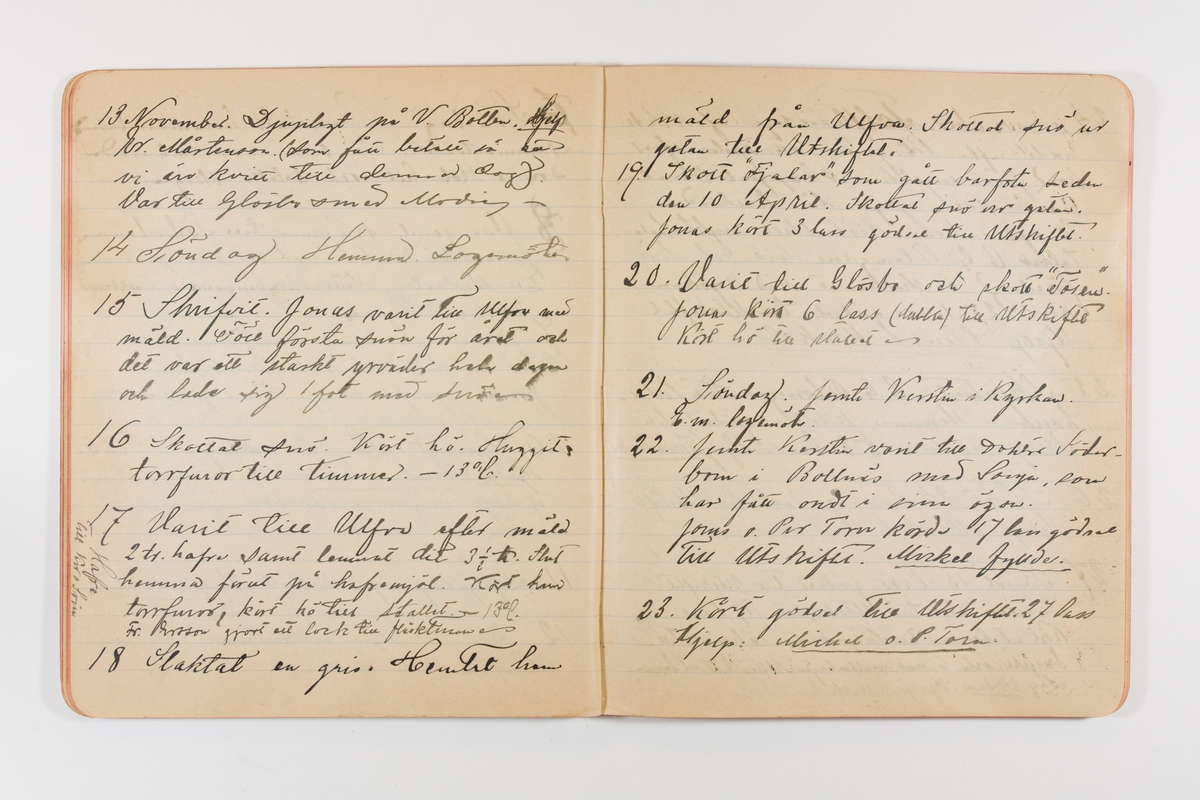 13 November. Djuplagt på V. Botten. Hjelp
Kr. Mårtenson. (som fått betalt så att
vi äro kvitt till denna dag)
Var till Glösbo smed Modin
14 Söndag. Hemma Logemöte
15 Skrifvit. Jonas varit till Ulfva med
mäld. Föll första snön för året och
det var ett starkt yrväder hela dagen
och lade sig 1 fot med snö
16 Skottat snö. Kört hö. Huggit
torrfuror till timmer. – 13°C.
17 Varit till Ulfva efter mäld
2 tr. hafre samt lemnat dit 3½ tr. Slut
hemma förut på hafremjöl. Kört hem
torrfuror, kört hö till stallet. – 13°C.
Fr. Persson gjort ett lock till
18 Slaktat en gris. Hemtat hem
Hafre
till
mäld från Ulfva. Skottat snö ur
gatan till Utskiftet.
19 Skott "Fjalar" som gått barfota sedan
den 10 April. Skottat snö ur gatan.
Jonas kört 3 lass gödsel till Utskiftet.
20. Varit till Glösbo och skott "Tösen".
Jonas kört 6 lass (dubbla) till Utskiftet
Kört hö till stallet
21. Söndag. Jemte Kerstin i Kyrkan.
E.m. logemöte.
22. Jemte Kerstin varit till Doktor Söder-
bom i Bollnäs med Sonja, som
har fått ondt i sina ögon.
Jonas o. Per Tora körde 17 lass gödsel
till Utskiftet. Mickel fyllde.
23. Kört gödsel till Utskiftet. 27 lass
Hjelp: Mickel o. P. Tora.